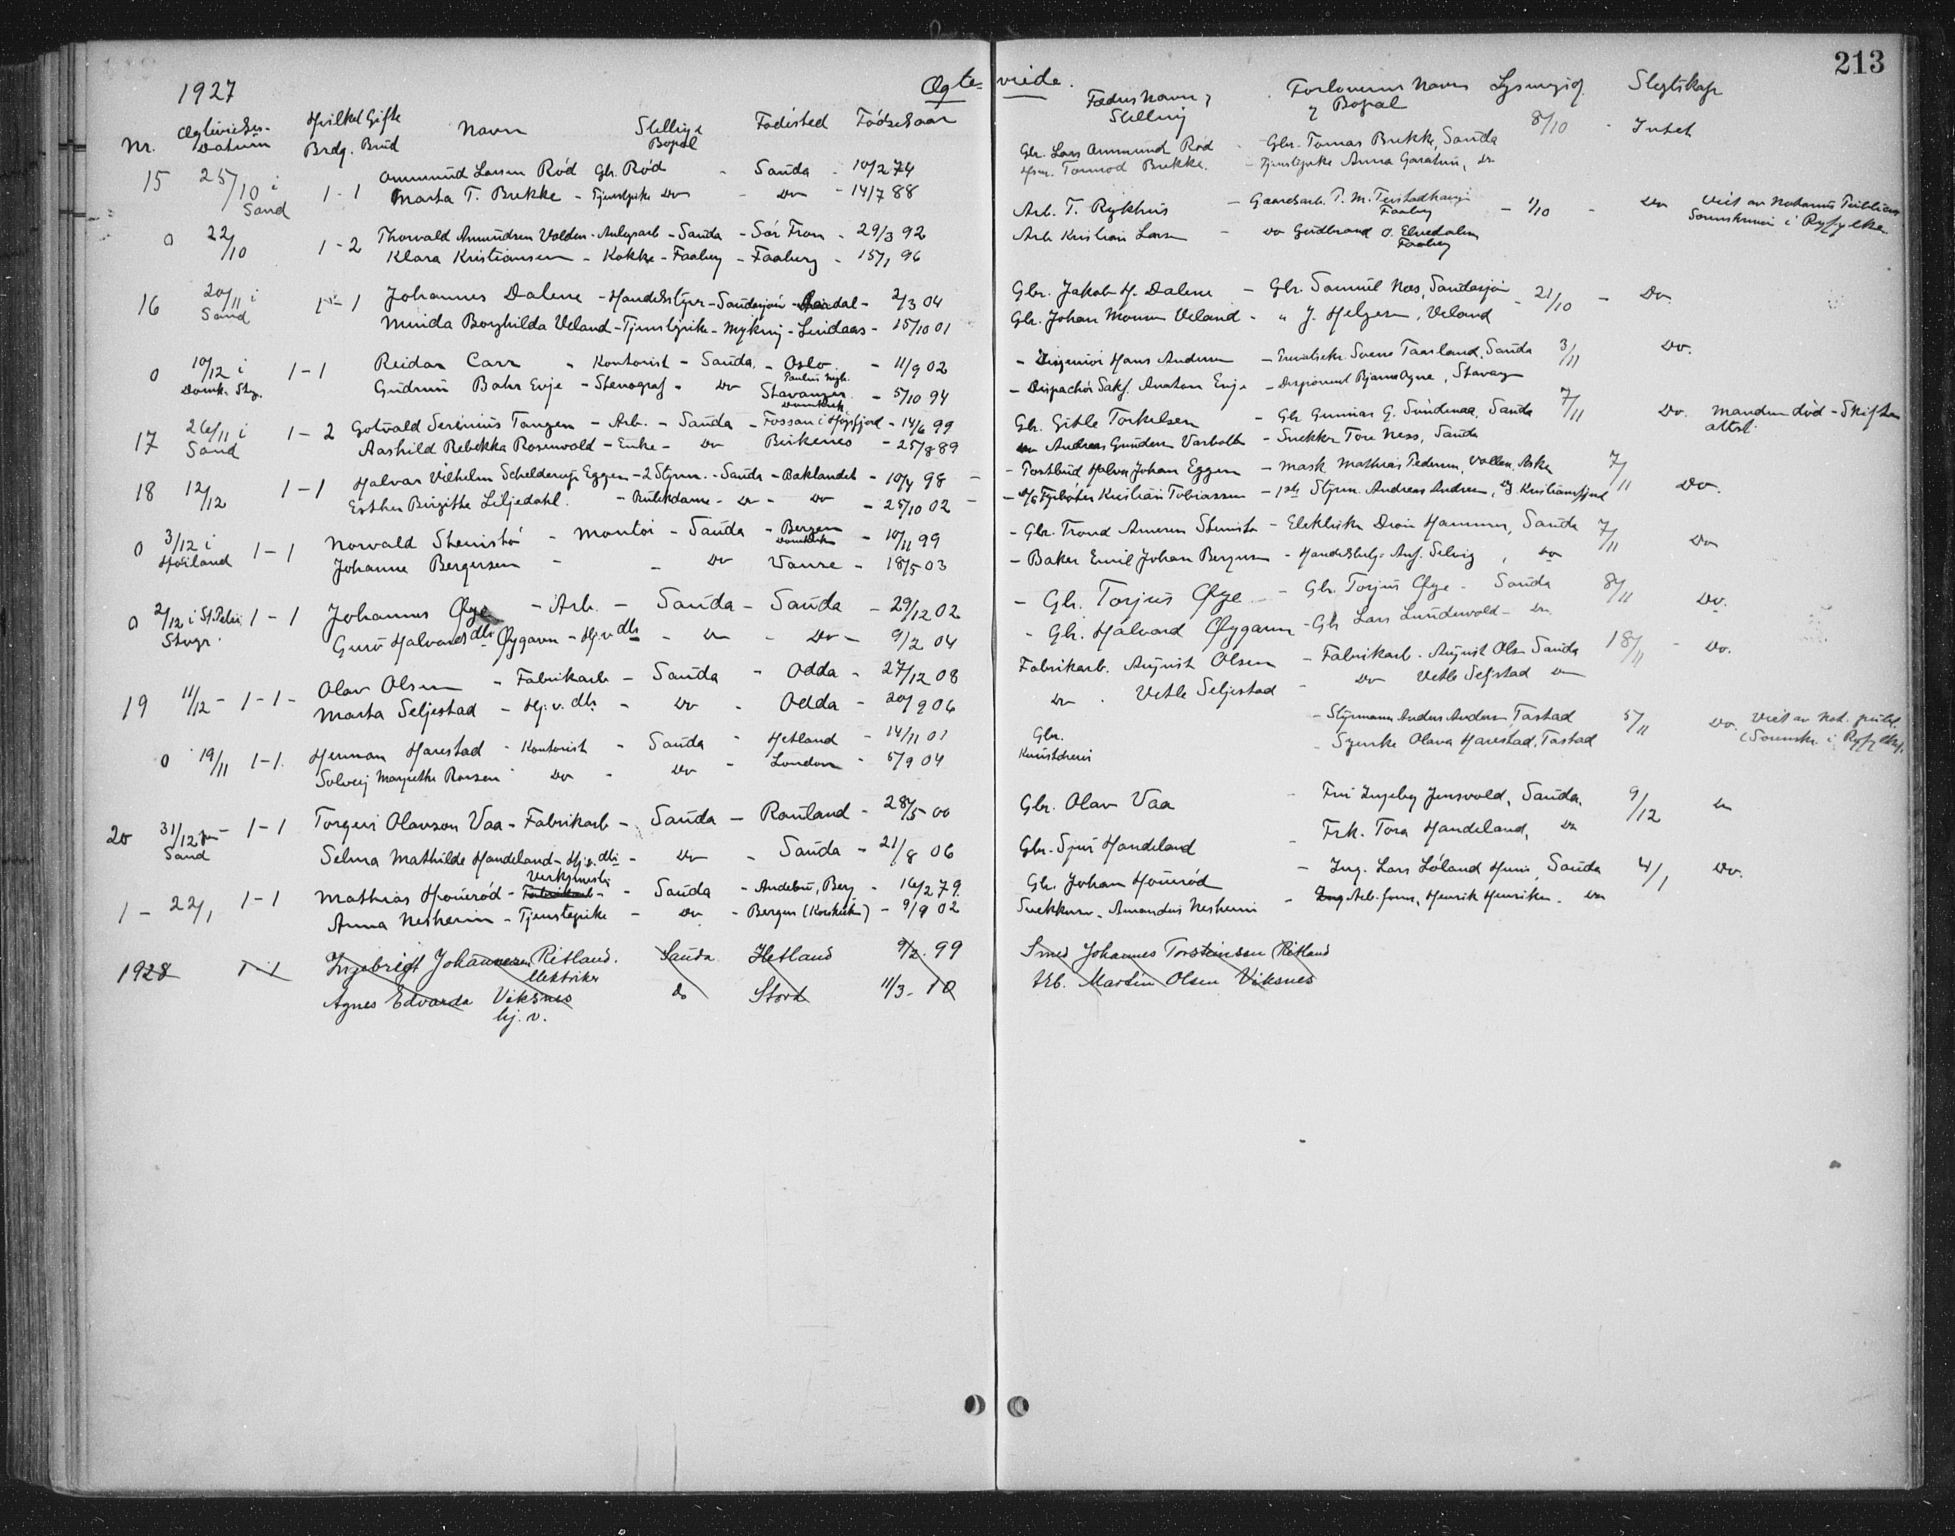 213
1927 Ægte- viede.
Nr. Datum Hvilket Gifte Brdg. Brud Navn Stilling & Bopæl Fødested Fødselsaar Fadrens Navn & Stilling Forlovernes Navn & Bopæl Slegtskap
15 25/10 i Sand 1-1 Ommund Larsen Rød Gbr. Rød - Sauda - 10/2 74 Gbr. Lars Ommund Rød - Gbr. Tomas Brekke, Sauda 8/10 - Intet
Marta T. Brekke - Tjenstpike Do - Do - 14/7 88 Hsm. Tormod Brekke - Tjenstpike Anna
0 22/10 1-2 Thorvald Amundsen Volden - Anlegsarb - Sauda - Sør Fron - 29/3 92 Arb. T. Rykhus - Gaardsarb. T. M. Faaberg - 1/10 - Do Viet av Notarius Publicus
Klara Kristiansen - Kokke - Faaberg - Faaberg - 15/1 96 Arb. Kristian Larsen - Do Gudbrand O. Faaberg Sorenskriver i Ryfylke
16 20/11 i Sand 1-1 Johannes Dalene - Handelsstyrer - Saudasjøen - 2/3 04 Gbr. Jakob H. Dalene - Gbr. Samuel Næs, Saudasjøen - 21/10 - Do
Borghilda Veland - Tjenstpike - - Lindaas - 15/10 01 Gbr. Johan Monsen Veland - " J. Helgesen, Veland
0 10/12 i Domk. Stvg. 1-1 Reidar Carr - Kontorist - Sauda - Oslo - 11/9 02 - Ingeniør Hans Andersen - Sverre Taarland, Sauda 3/11 Do.
Gudrun Bahr Evje - Stenograf - Do Stavanger Domkirk. - 5/10 94 - Dispachør Anton Evje - Disponent Bjarne Ogne, Stavanger
17 26/11 i Sand 1-2 Gotvald Serinius Tangen - Arb. - Sauda - Fossan i Høgsfjord - 14/6 99 Gbr. Gitle Torkelsen - Gbr Gunnar G. Søndenaa, Sauda 7/11 Do. Manden død - Skifte attst.
Aashild Rebekka Rosenvold - Enke - Do Birkenes - 25/8 89 Andreas Gundersen - Snekker Tore Ness, Sauda
18 12/12 1-1 Halvar Vilhelm Schelderup Eggen - 2 Styrm. - Sauda - Baklandet - 10/4 98 - Postbud Halvor Johan Eggen - Mask. Mathias Pedersen, Vollen, Asker 7/11 Do.
Esther Birgithe Liljedahl. - Butikdame - Do - Do - 25/10 02 - Kristian Tobiassen - 1ste Styrm. Andreas Andersen
0 3/12 i Høiland 1-1 Norvald Stenistø - Montør - Sauda - Bergen Domkirken - 10/11 99 - Gbr. Trond Stenistø - Elektriker Hammer, Sauda 7/11 Do
Johanne Bergersen - - Do Vanse - 18/5 03 - Baker Emil Johan Bergersen - Selvig, Do
0 2/12 i St. Petri Stvgr. 1-1 Johannes Øye - Arb. - Sauda - Sauda - 29/12 02 - Gbr. Torjus Øye - Gbr. Torjus Øye - Sauda 8/11 Do.
Guro Halvardsdtr Øygarn - Hj. v. dtr - Do - Do - 9/2 04 - Gbr. Halvard Øygarn - Gbr Lars Lundevold - Do
19 11/12 - 1-1 - Olav Olsen - Fabrikarb - Sauda - Odda - 27/12 08 Fabrikarb. August Olsen - Fabrikarb. August Olsen Sauda 18/11 - Do.
Marta Seljestad - Hj. v. dtr - Do - Odda - 20/9 06 Do - Vetle Seljestad - Do Vetle Seljestad Do
0 19/11 1-1. Herman Harestad - Kontorist - Sauda - Hetland - 14/11 01 Gbr. - Styrmann Anders Andersen, Tastad 5/11 Do. Viet av Not. publ.
Solveig Margrethe - Do - Do - London - 5/9 04 - Olava Harestad, Tastad (Sorenskr. i Ryfylke).
20 31/12 Sand - 1-1 Torgeir Olavson Vaa - Fabrikarb - Sauda - Rauland - 28/5 00 Gbr. Olav Vaa - Fru Ingeborg Jensvold, Sauda. 9/12 Do
Selma Mathilde Handeland - Hj. v. dtr - Do - Sauda - 21/8 06 Gbr. Handeland - Frk. Tora Handeland, Do
1 - 22/1 1-1 Mathias - Fabrikarb - Sauda - Andebu, Berg - 16/2 79. Gbr. Johan - Ing. Lars Løland, Sauda 4/1 Do.
Anna Nesheim - Tjenstepike - Do - Bergen (Korskirken) - 9/9 02 Snekkersv. Amandus Nesheim - Arb. form. Henrik Henriksen. Do
1928 1-1 Ingebrigt Johannesen Ritland. Elektriker Sauda Hetland 9/2. 99 Smed Johannes Torsteinsen Ritland
Agnes Edvarda Viksnes hj. v. do Stord 11/3 - 10 Arb. Martin Olsen Viksnes